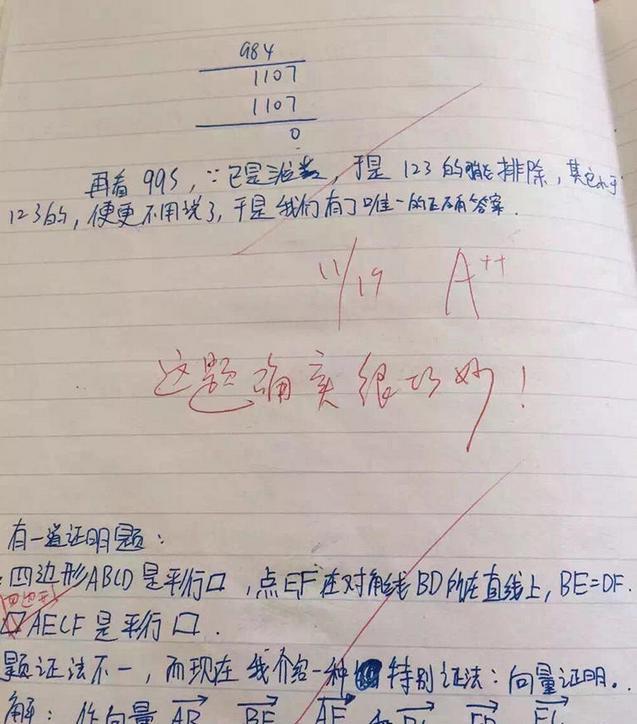 984
1107
1107
0
再看 995，∵已是三位数，于是 123 的 排除，其它小于
123的，便更不用说了，于是我们有了唯一的正确答案．
11/19 A++
这题确实很巧妙！
有一道证明题：
四边形ABCD是平行口，点EF在对角线BD所在直线上，BE=DF．
四边形
AECF是平行口．
题证法不一，而现在我介绍一种 特别证法：向量证明．
解：作向量 AB BE AE 和